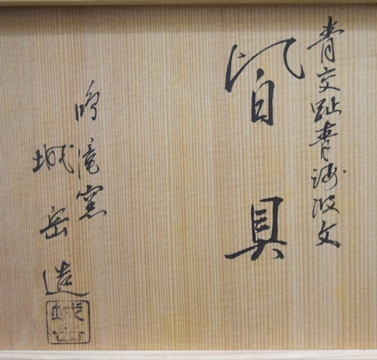 青交趾青海波文
皆具
鳴滝窯
城岳造
城岳